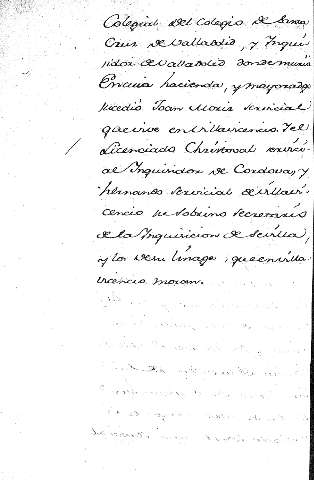 Colegial del Colegio de Santa
Cruz de Valladolid, y Inqui-
sidor de Valladolid donde murio
En cuia hacienda, y mayorazgo
sucedió Joan Moriz Servicial
que vive en Villavicencio. Y el
Licenciado Christoval Servici-
al Inquisidor de Cordova, y
hernando Servicial de Villavi-
cencio su sobrino secretario
de la Inquisicion de Sevilla,
y los de su linage, que en villa-
vicencio moran.